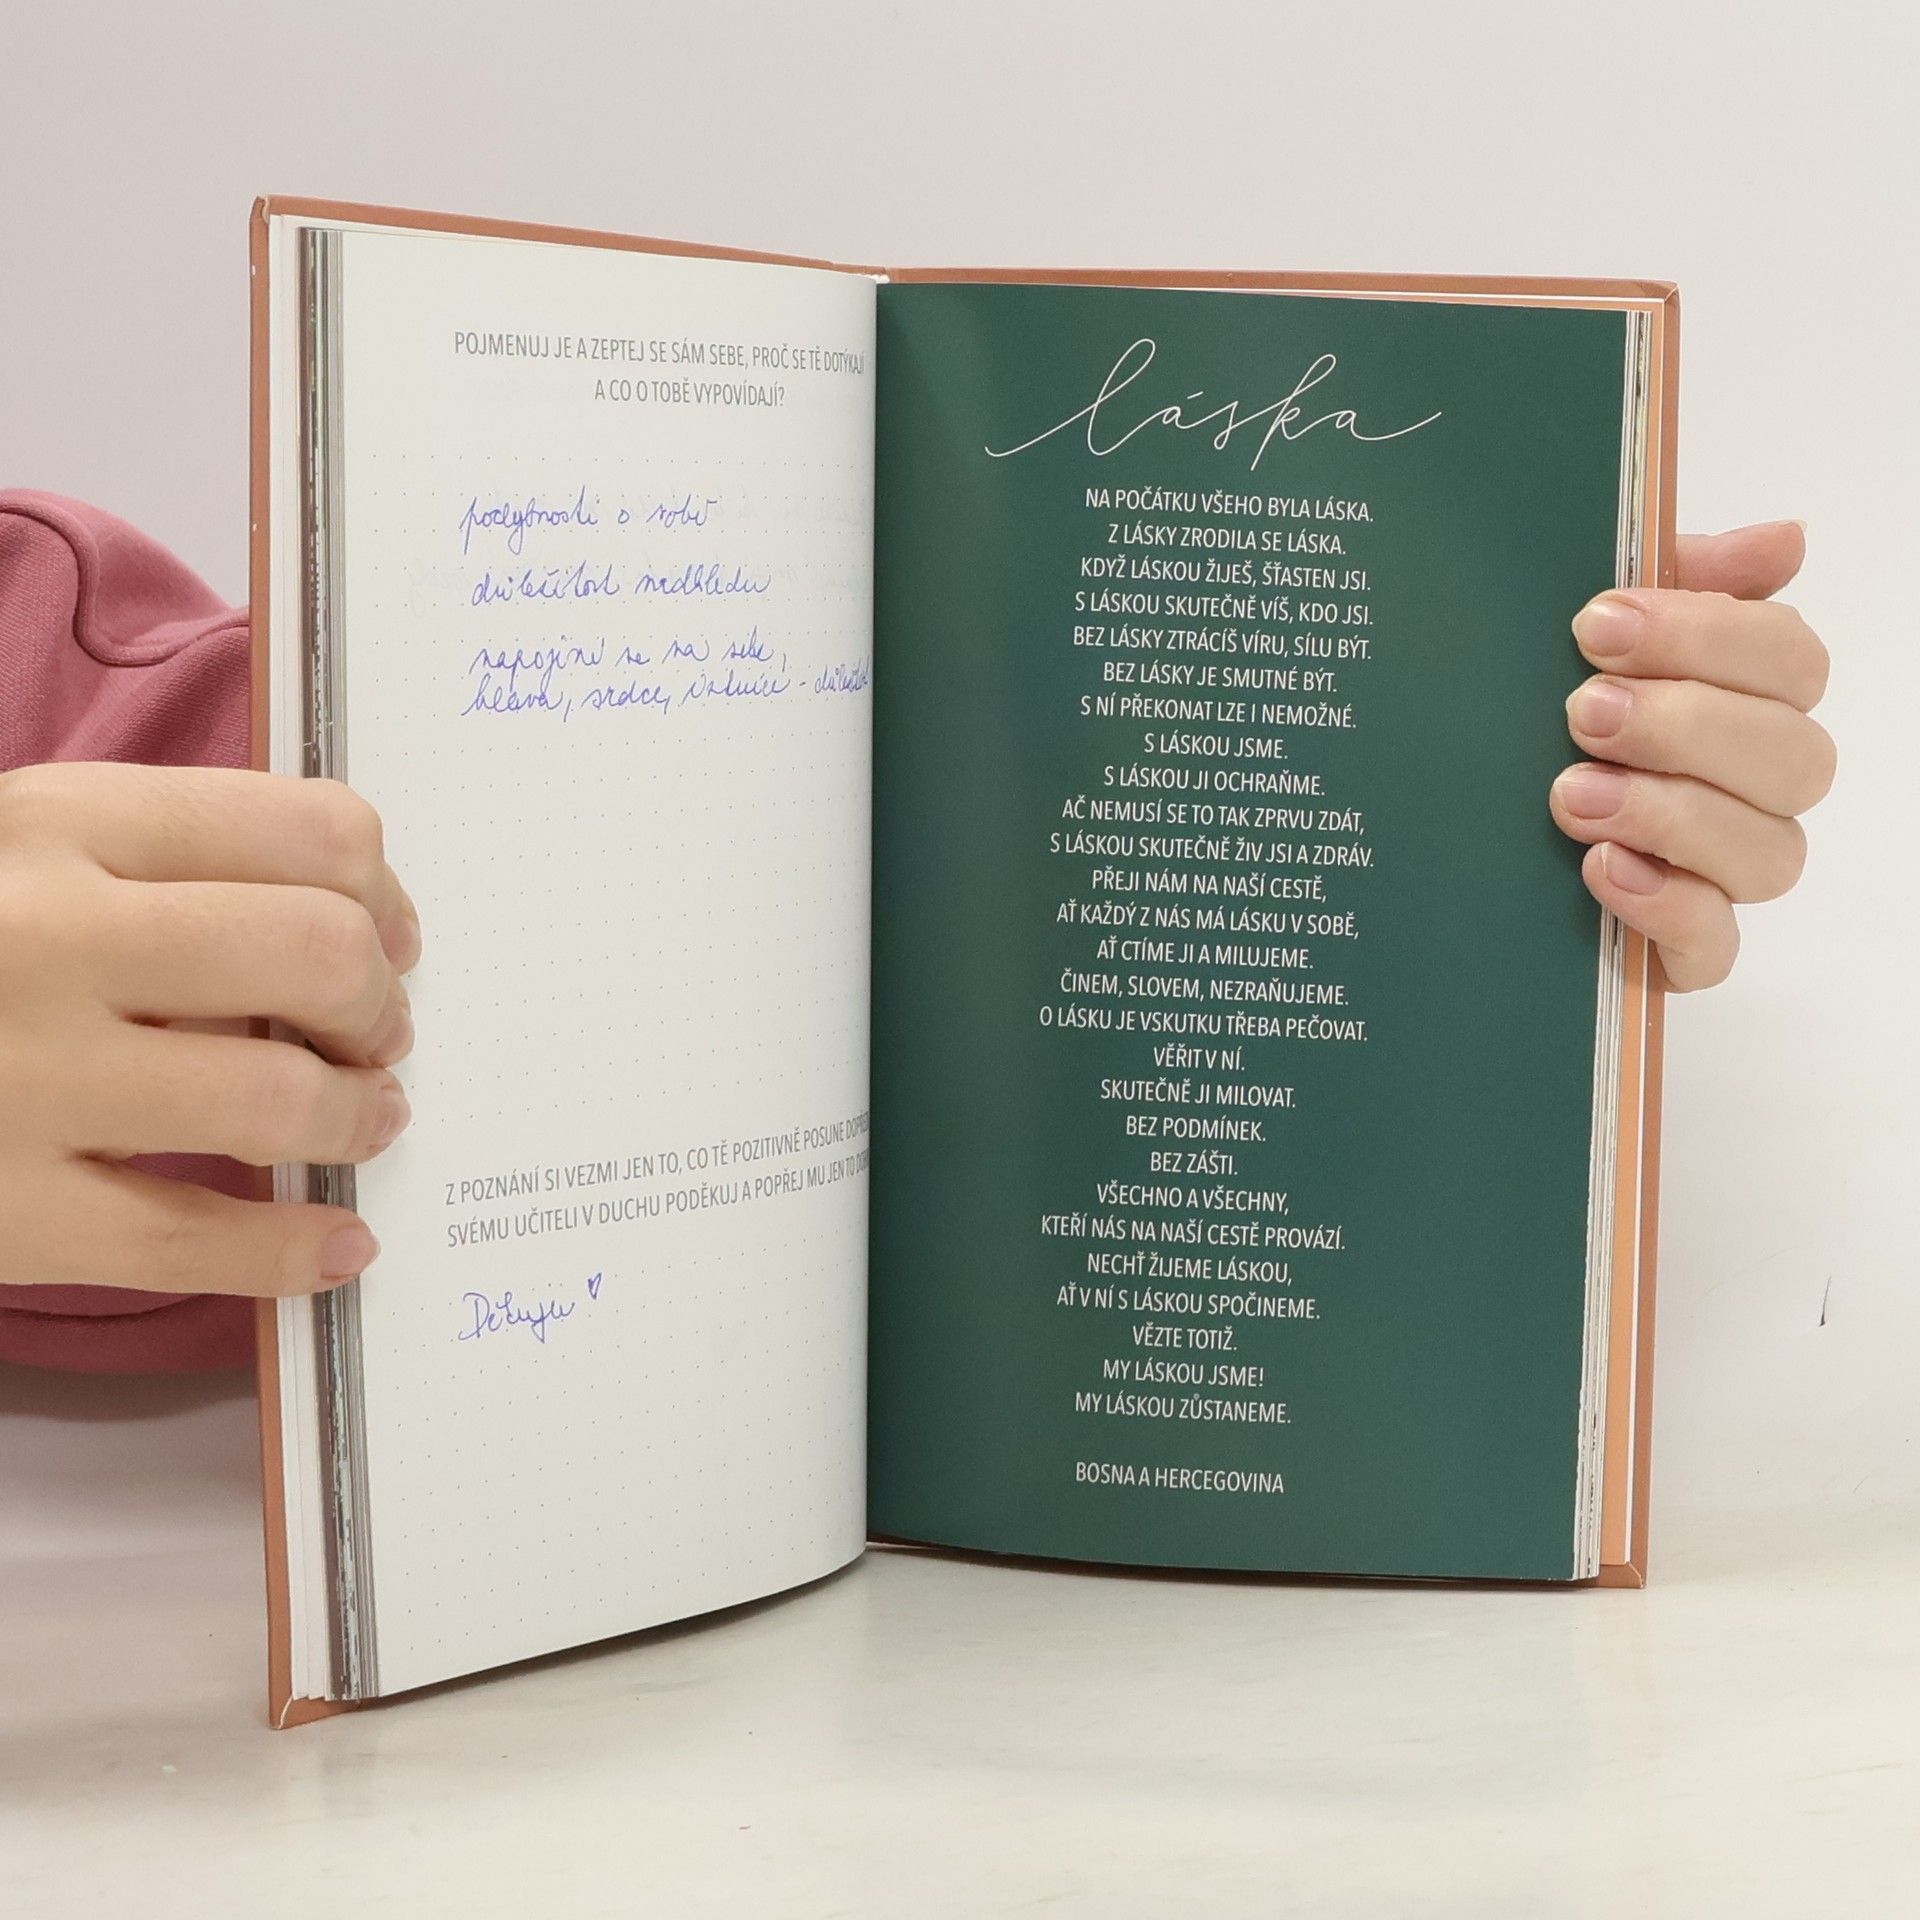 POJMENUJ JE A ZEPTEJ SE SÁM SEBE, PROČ SE TĚ DOTÝKAJÍ
A CO O TOBĚ VYPOVÍDAJÍ?
pochybnosti o sobě
důležitost nadhledu
napojení se na sebe,
hlava, srdce, intuice - důležitost
Z POZNÁNÍ SI VEZMI JEN TO, CO TĚ POZITIVNĚ POSUNE
SVÉMU UČITELI V DUCHU PODĚKUJ A POPŘEJ MU JEN TO
Děkuju
láska
NA POČÁTKU VŠEHO BYLA LÁSKA.
Z LÁSKY ZRODILA SE LÁSKA.
KDYŽ LÁSKOU ŽIJEŠ, ŠŤASTEN JSI.
S LÁSKOU SKUTEČNĚ VÍŠ, KDO JSI.
BEZ LÁSKY ZTRÁCÍŠ VÍRU, SÍLU BÝT.
BEZ LÁSKY JE SMUTNÉ BÝT.
S NÍ PŘEKONAT LZE I NEMOŽNÉ.
S LÁSKOU JSME.
S LÁSKOU JI OCHRAŇME.
AČ NEMUSÍ SE TO TAK ZPRVU ZDÁT,
S LÁSKOU SKUTEČNĚ ŽIV JSI A ZDRÁV.
PŘEJI NÁM NA NAŠÍ CESTĚ,
AŤ KAŽDÝ Z NÁS MÁ LÁSKU V SOBĚ,
AŤ CTÍME JI A MILUJEME.
ČINEM, SLOVEM, NEZRAŇUJEME.
O LÁSKU JE VSKUTKU TŘEBA PEČOVAT.
VĚŘIT V NÍ.
SKUTEČNĚ JI MILOVAT.
BEZ PODMÍNEK.
BEZ ZÁŠTI.
VŠECHNO A VŠECHNY,
KTEŘÍ NÁS NA NAŠÍ CESTĚ PROVÁZÍ.
NECHŤ ŽIJEME LÁSKOU,
AŤ V NÍ S LÁSKOU SPOČINEME.
VĚZTE TOTIŽ.
MY LÁSKOU JSME!
MY LÁSKOU ZŮSTANEME.
BOSNA A HERCEGOVINA